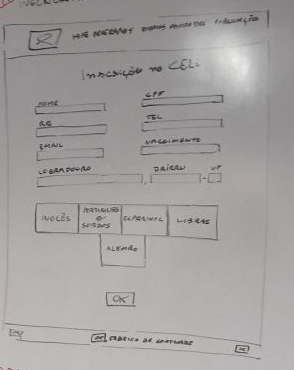 Inscrição no CELi
NOME
CPF
RG
TEL
EMAIL
NASCIMENTO
LOGRADOURO
BAIRRO
UF
INGLÊS
PORTUGUES
P/
SURDOS
ESPANHOL
LIBRAS
ALEMÃO
OK
FABRICA DE SOFTWARE